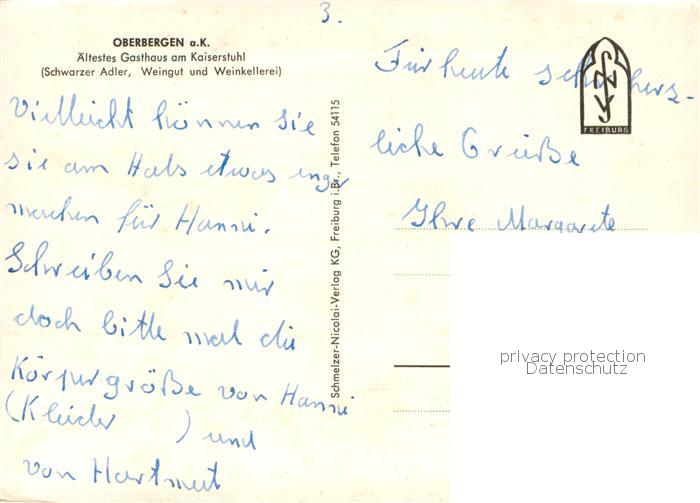 3.
OBERBERGEN a.K.
Ältestes Gasthaus am Kaiserstuhl
(Schwarzer Adler, Weingut und Weinkellerei)
Vielleicht können Sie
sie am Hals etwas enger
machen für Hanni.
Schreiben Sie mir
doch bitte mal die
Körpergröße von Hanni
(Kleider ) und
von Hartmut
Schmelzer-Nicolai-Verlag KG, Freiburg i.Br., Telefon 54115
Für heute sehr herz-
liche Grüße
Ihre Margarete
FREIBURG
privacy protection
Datenschutz